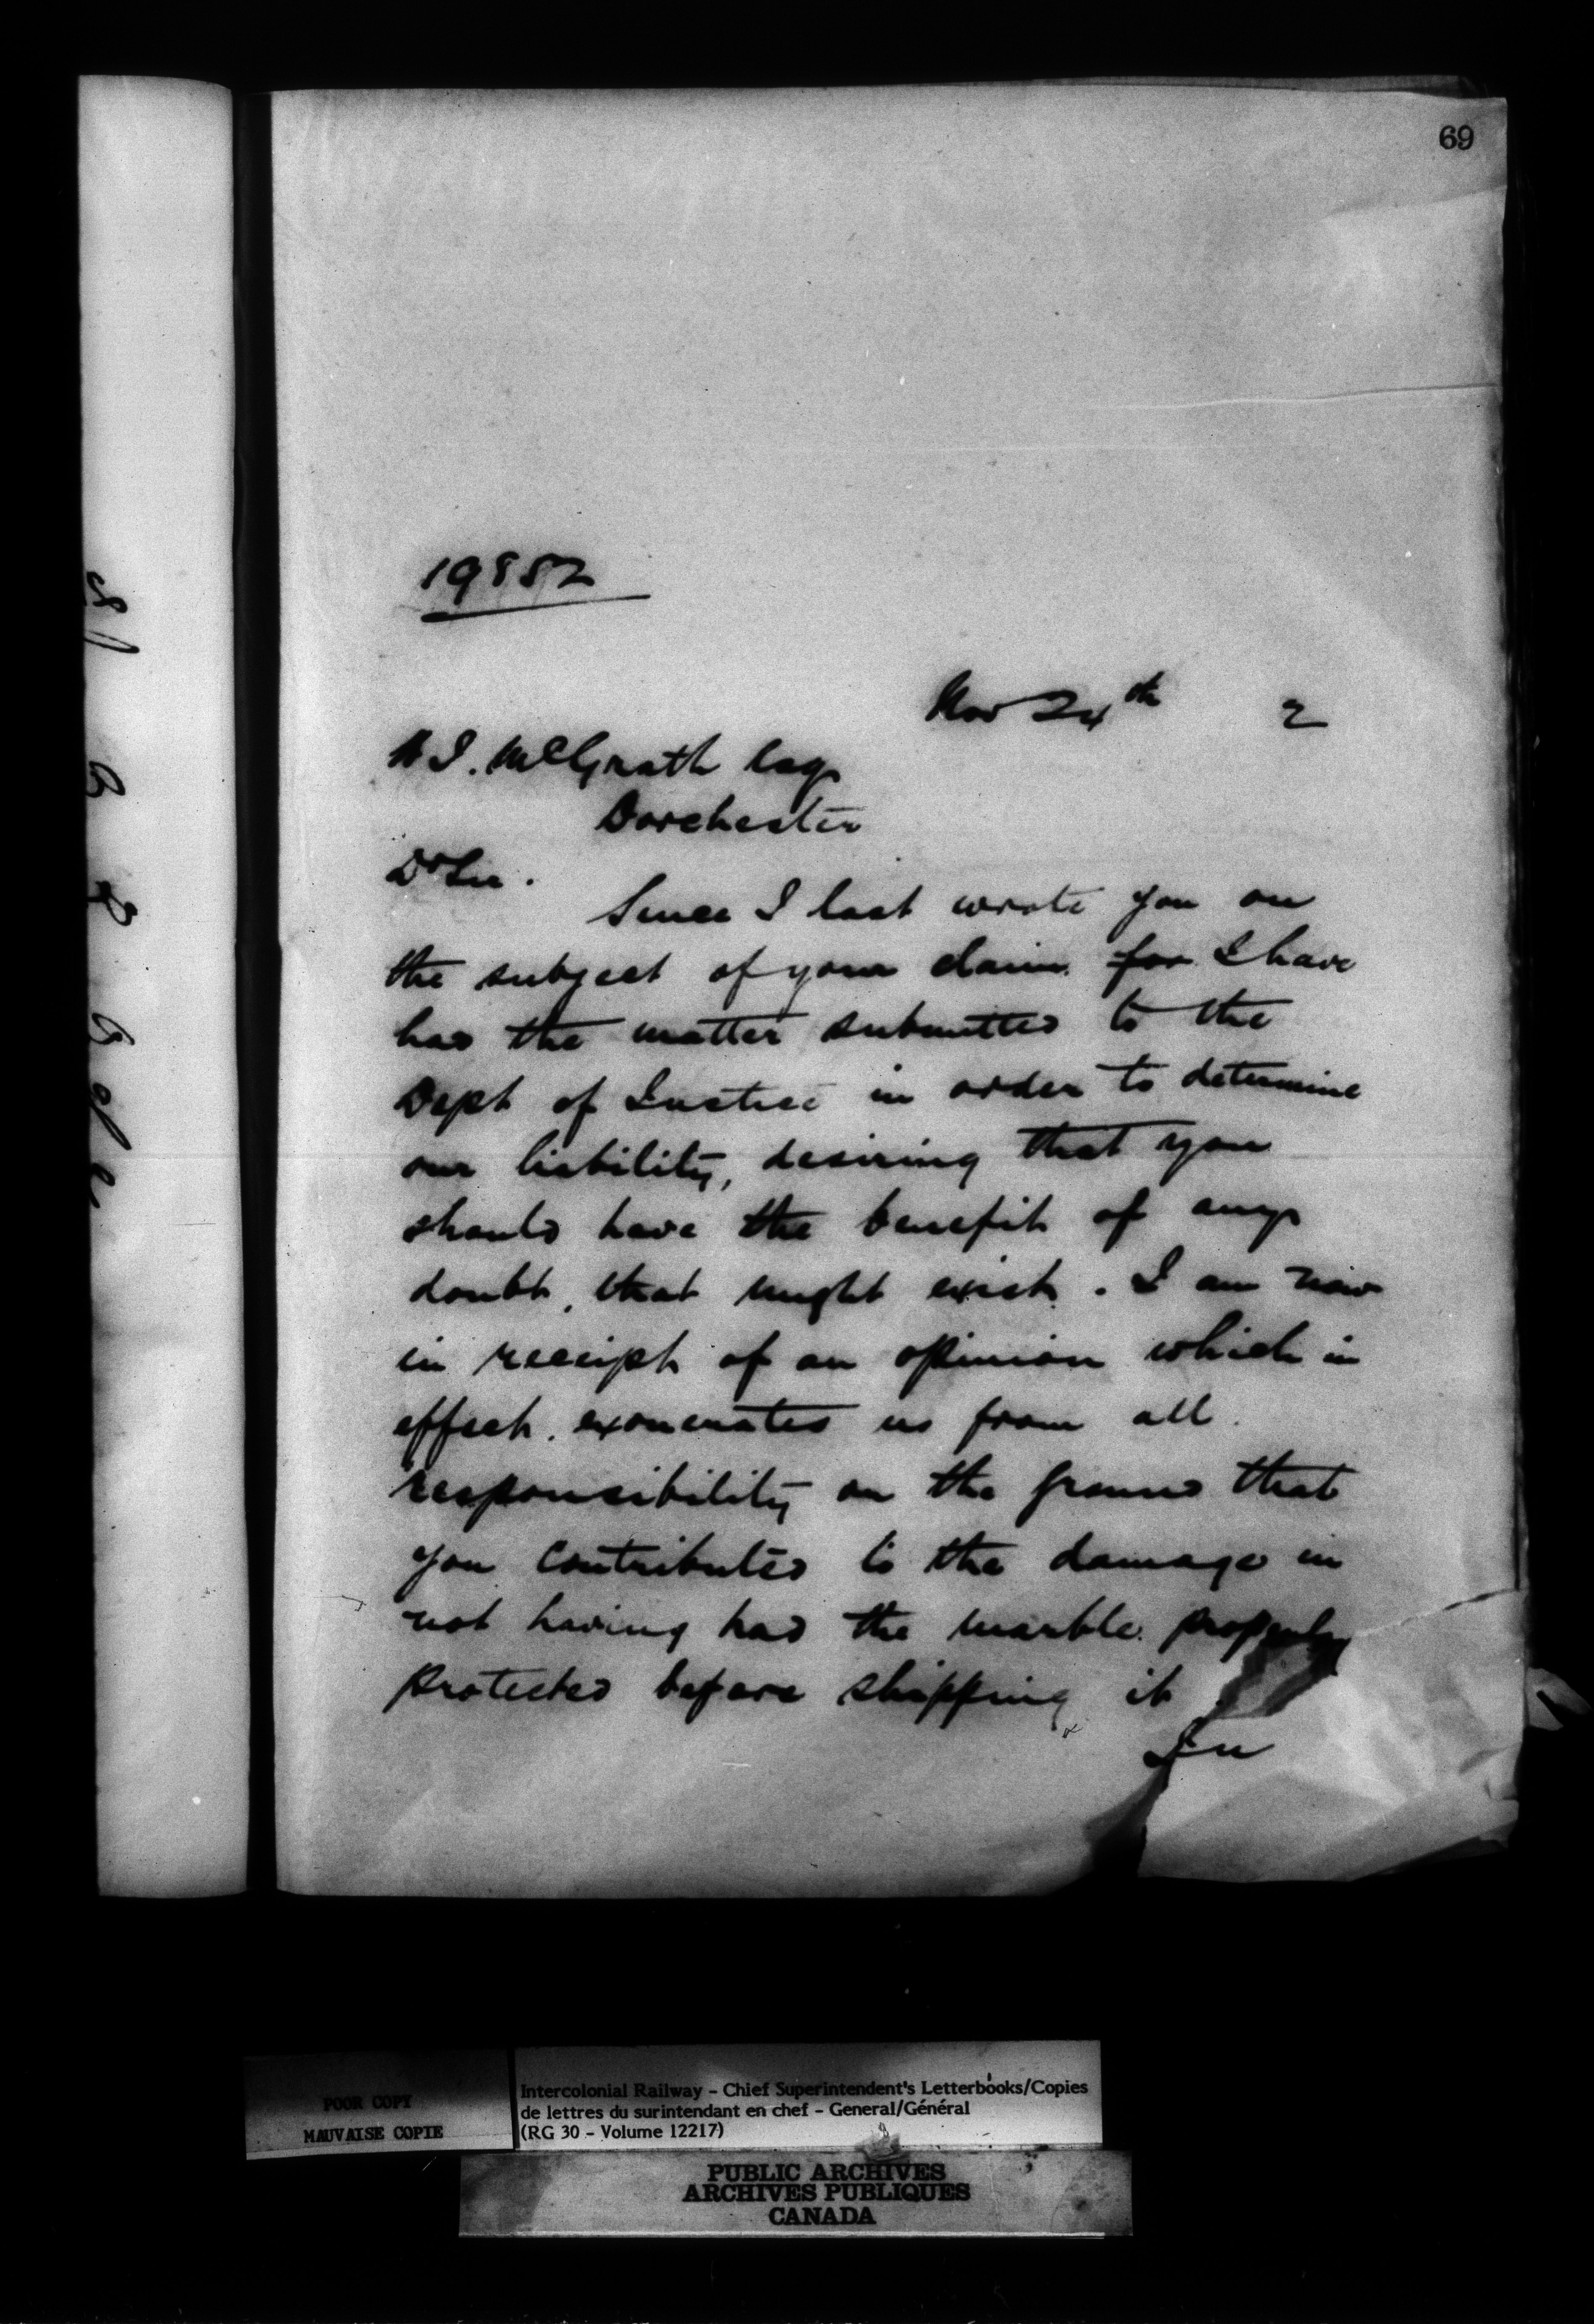 69
19852
Nov 24th 2
McGrath Esq
Dorchester
Dr Sir.
Since I last wrote you on
the subject of your claim for I have
had the matter submitted to the
Dept of Justice in order to determine
our liability, desiring that you
should have the benefit of any
doubt, that might exist. I am now
in receipt of an opinion which in
effect exonerates us from all
responsibility on the ground that
you contributed to the damage in
not having had the marble properly
protected before shipping it.
In
POOR COPY
MAUVAISE COPIE
Intercolonial Railway - Chief Superintendent's Letterbooks/Copies
de lettres du surintendant en chef - General/Général
(RG 30 - Volume 12217)
PUBLIC ARCHIVES
ARCHIVES PUBLIQUES
CANADA